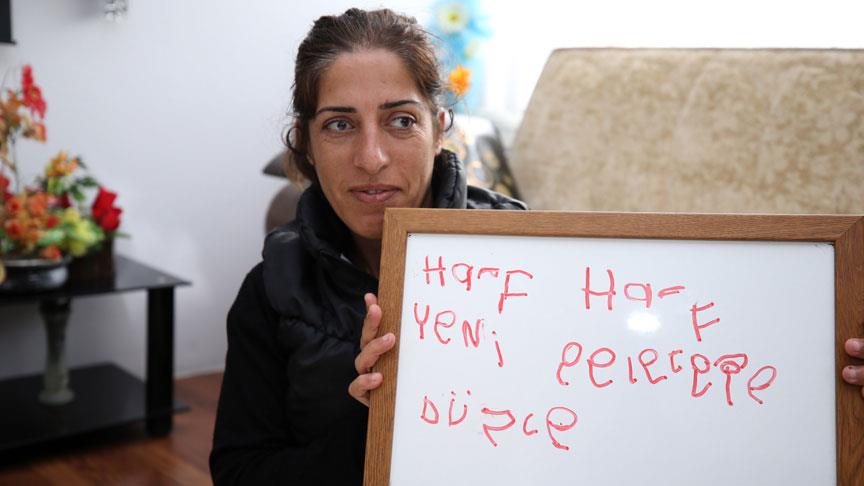 HarF HarF
YeNi geleceğe
DÜzce